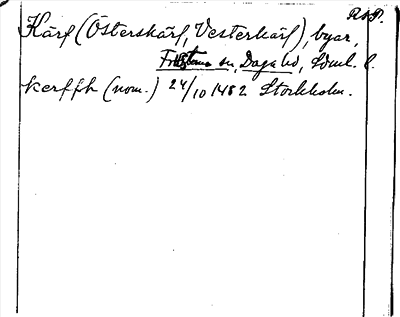 R&P.
Kärf (Österskärf, Vesterkärf), byar,
Fristama sn, Daga hd, Söml. l.
kerffh (nom.) 24/10 1482 Stockholm.